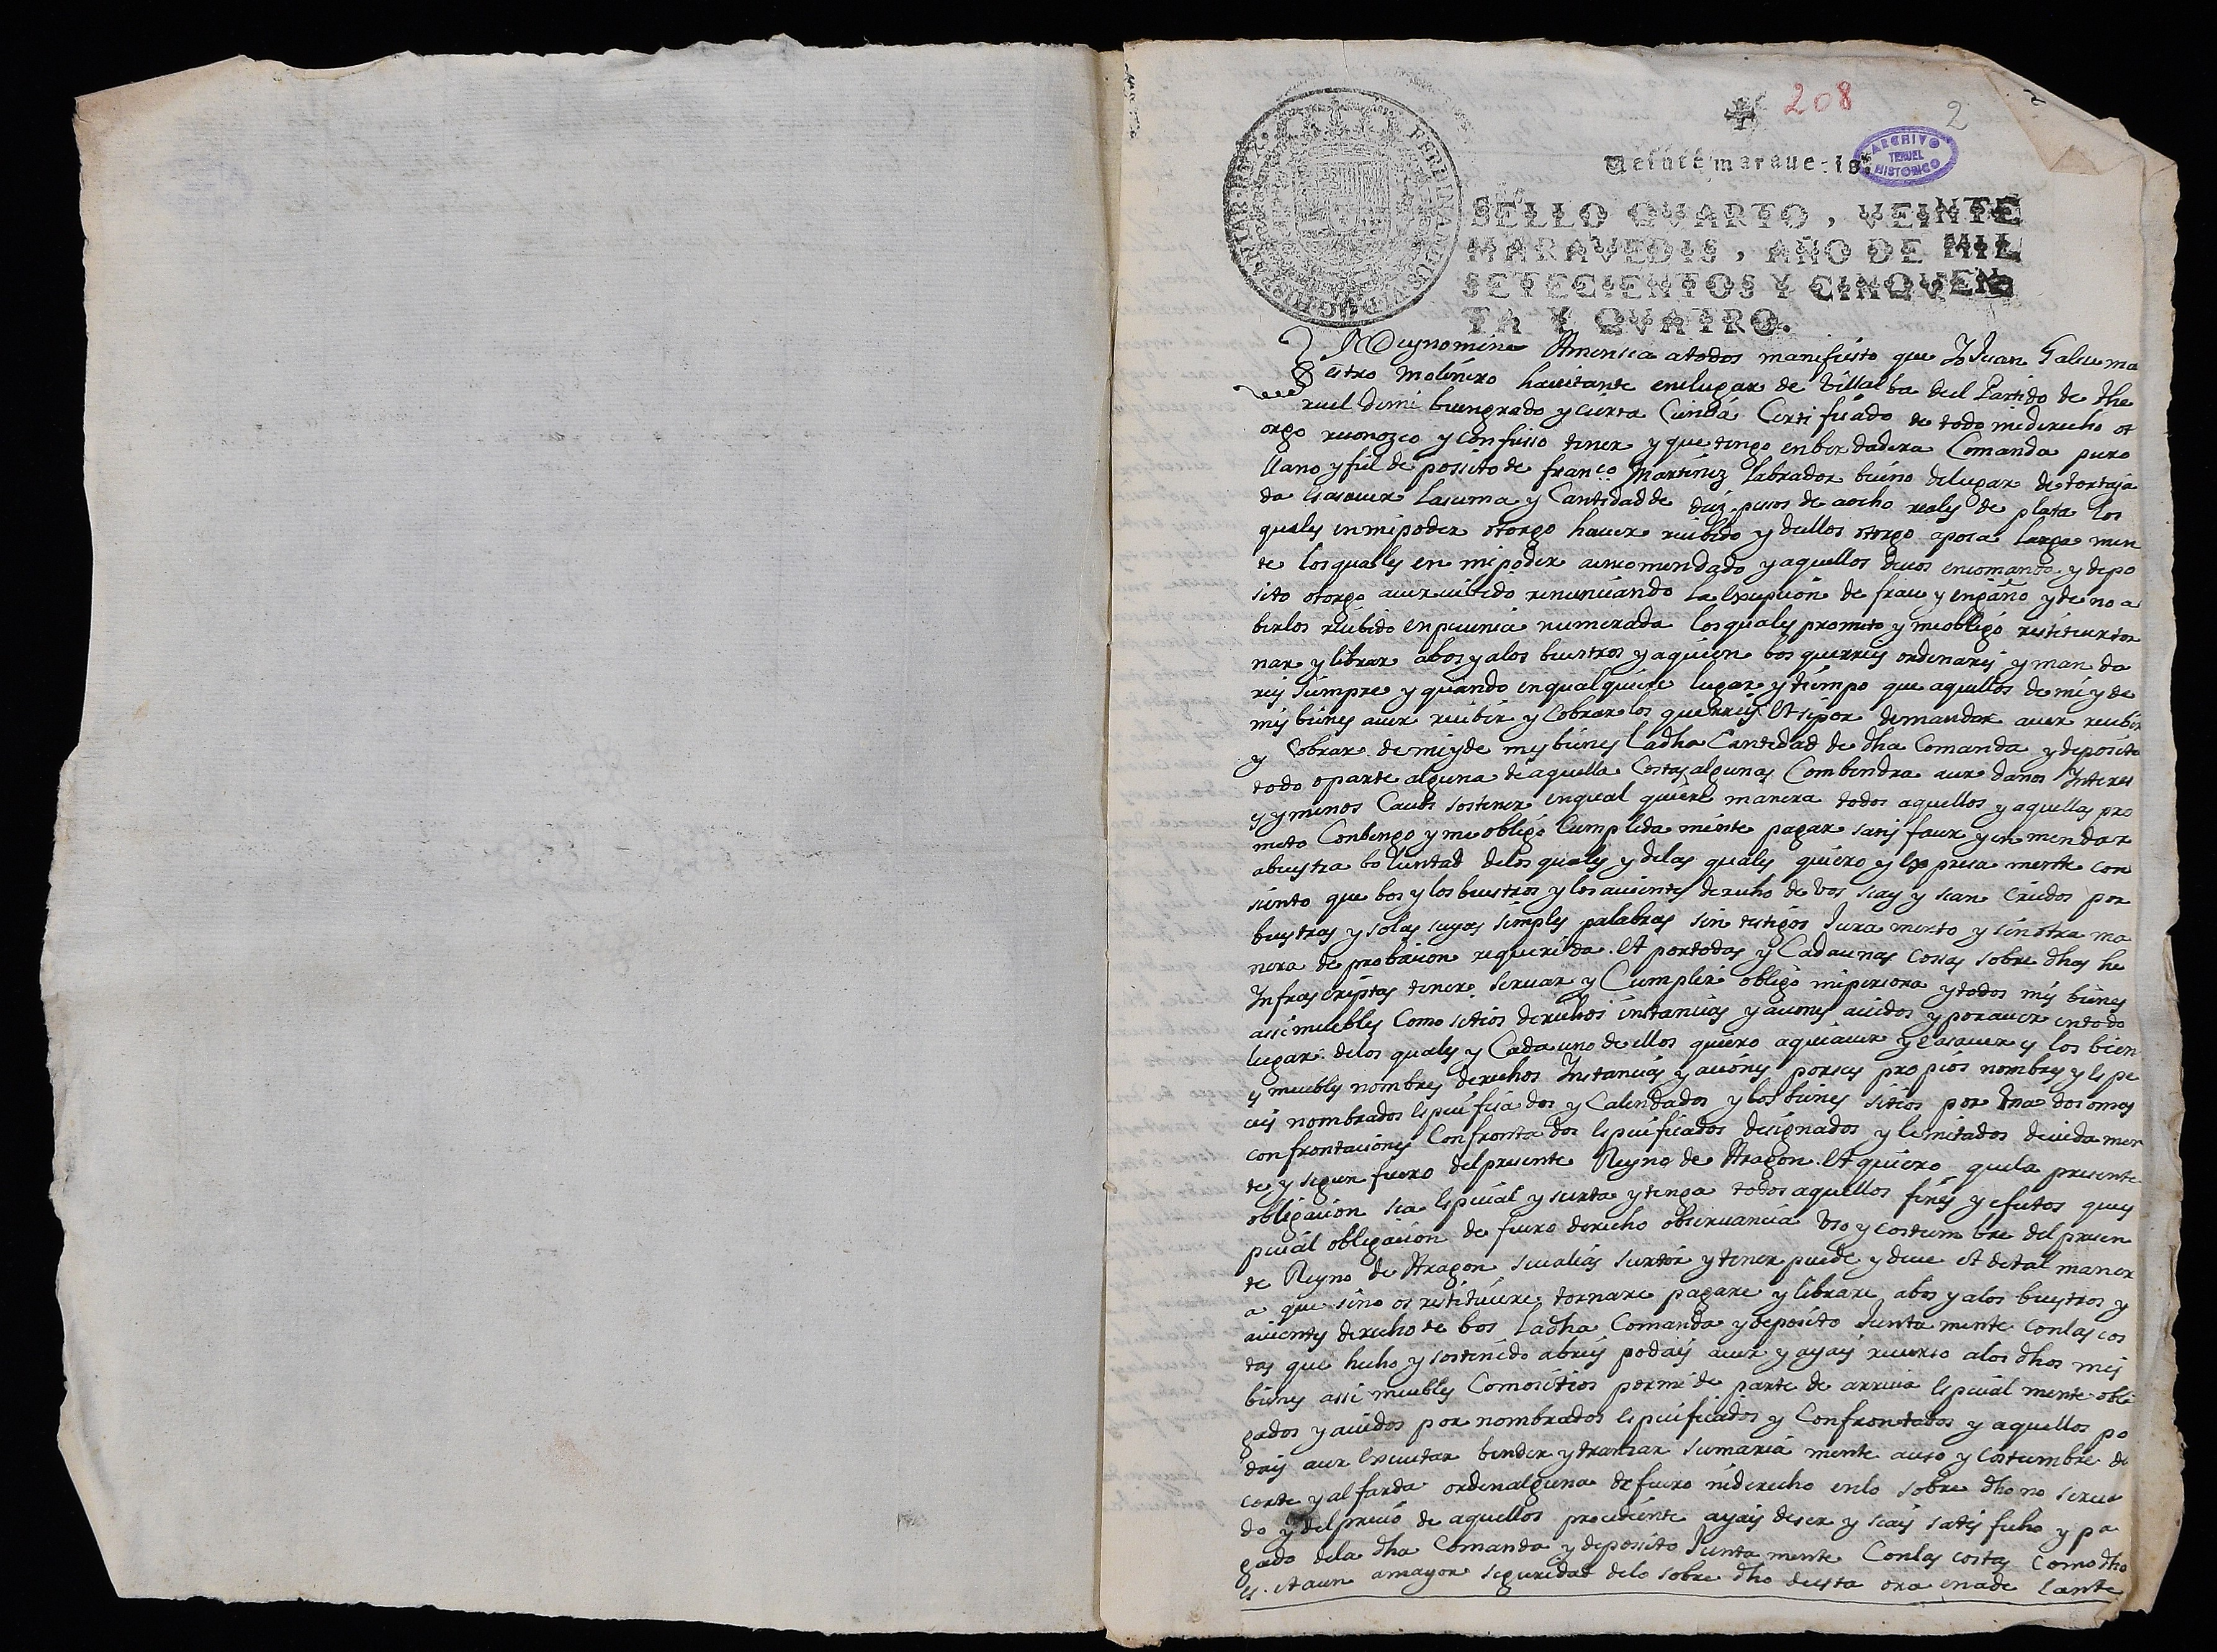 208
2
2
Veinte maraue.is
ARCHIVO
TERUEL
HISTORICO
SELLO QVARTO, VEINTE
MARAVEDIS, AÑO DE MIL
SETECIENTOS Y CINQVEN
TA Y QVATRO.
Dey nomine Amen sea atodos manifiesto que Yo Juan Galue ma
estro molinero hauitante enelugar de Villalba del Partido de The
ruel demi buengrado y cierta Ciencia Certificado de todo mi derecho ot
orgo reconozco y confiesso tener y que tengo enberdadera Comanda puro
llano y fiel depossito de franco Martinez Labrador becino delugar de tortaja
da esasauer lasuma y Cantidad de diez pesos de aocho reales de plata los
quales en mi poder otorgo hauer recibido y dellos otorgo apoca larga men
te los quales en mi poder aencomendado y aquellos deuos encomanda y depo
sito otorgo auer reciuido renunciando la excepcion de frau y engaño y de no a
berlos recibido en pecunia numerada los quales prometo y me obligo restituir tor
nar y librar abos y alos buestros y aquien bos querreis ordenareis y man da
reis siempre y quando enqualquiere lugar y tiempo que aquellos de mi y de
mis bienes auer recibir y Cobrar los querreis Et si por demandar auer recibir
y Cobrar de mi y de mis bienes la dha Cantidad de dha Comanda y deposito
todo o parte alguna de aquella Costas algunas Combendra aur danos Interes
es y menos Cauos sostener enqual quiere manera todos aquellos y aquellas pro
meto Conbengo y me obligo Cumplida mente pagar satisfacer y en mendar
abuestra boluntad delos quales y delas quales quiero y expresa mente con
siento que bos y los buestros y los auientes derecho de vos seais y sean Creidos por
buestras y solas suyas simples palabras sin testigos Jura mento y sin otra ma
nera de probacion requerida. Et portodas y Cada unas Cosas sobre dhas he
Infrascriptas tener seruar y Cumplir obligo mi persona y todos mis bienes
assi muebles Como sitios derechos instancias y aciones auidos y porauer entodo
lugar delos quales y Cada uno de ellos quiero aqui auer y es asauer y los bien
es muebles nombres derechos Instancias y aciones porsus propios nombres y espe
cies nombrados especificados y Calendados y los bienes sitios por una dos o mas
confrontaciones Confronta dos especificados designados y limitados deuida men
te y segun fuero del presente Reyno de Aragon. Et quiero quela presente
obligacion sea especial y surta y tenga todos aquellos fines y efectos que es
pecial obligacion de fuero derecho obseruancia Vso y costum bre del presen
te Reyno de Aragon seu alias surtir y tener puede y deue et detal maner
a que sino os restituiere tornare pagare y librare abos y alos buestros y
auientes derecho de bos la dha Comanda y deposito Junta mente con las cos
tas que hecho y sostenido abreis podais auer y ayais recurso alos dhos mis
bienes assi muebles Comositios pormi de parte de arriua especial mente obli
gados y auidos por nombrados especificados y Confrontados y aquellos po
dais auer executar bender y tranzar sumaria mente auso y Costumbre de
corte y alfarda orden alguna de fuero niderecho enlo sobre dho no serua
do y del precio de aquellos procediente ayais deser y seais satisfecho y pa
gado dela dha Comanda y deposito Junta mente Conlas costas Como dho
es. et aun amayor seguridad delo sobre dho desta ora enade lante